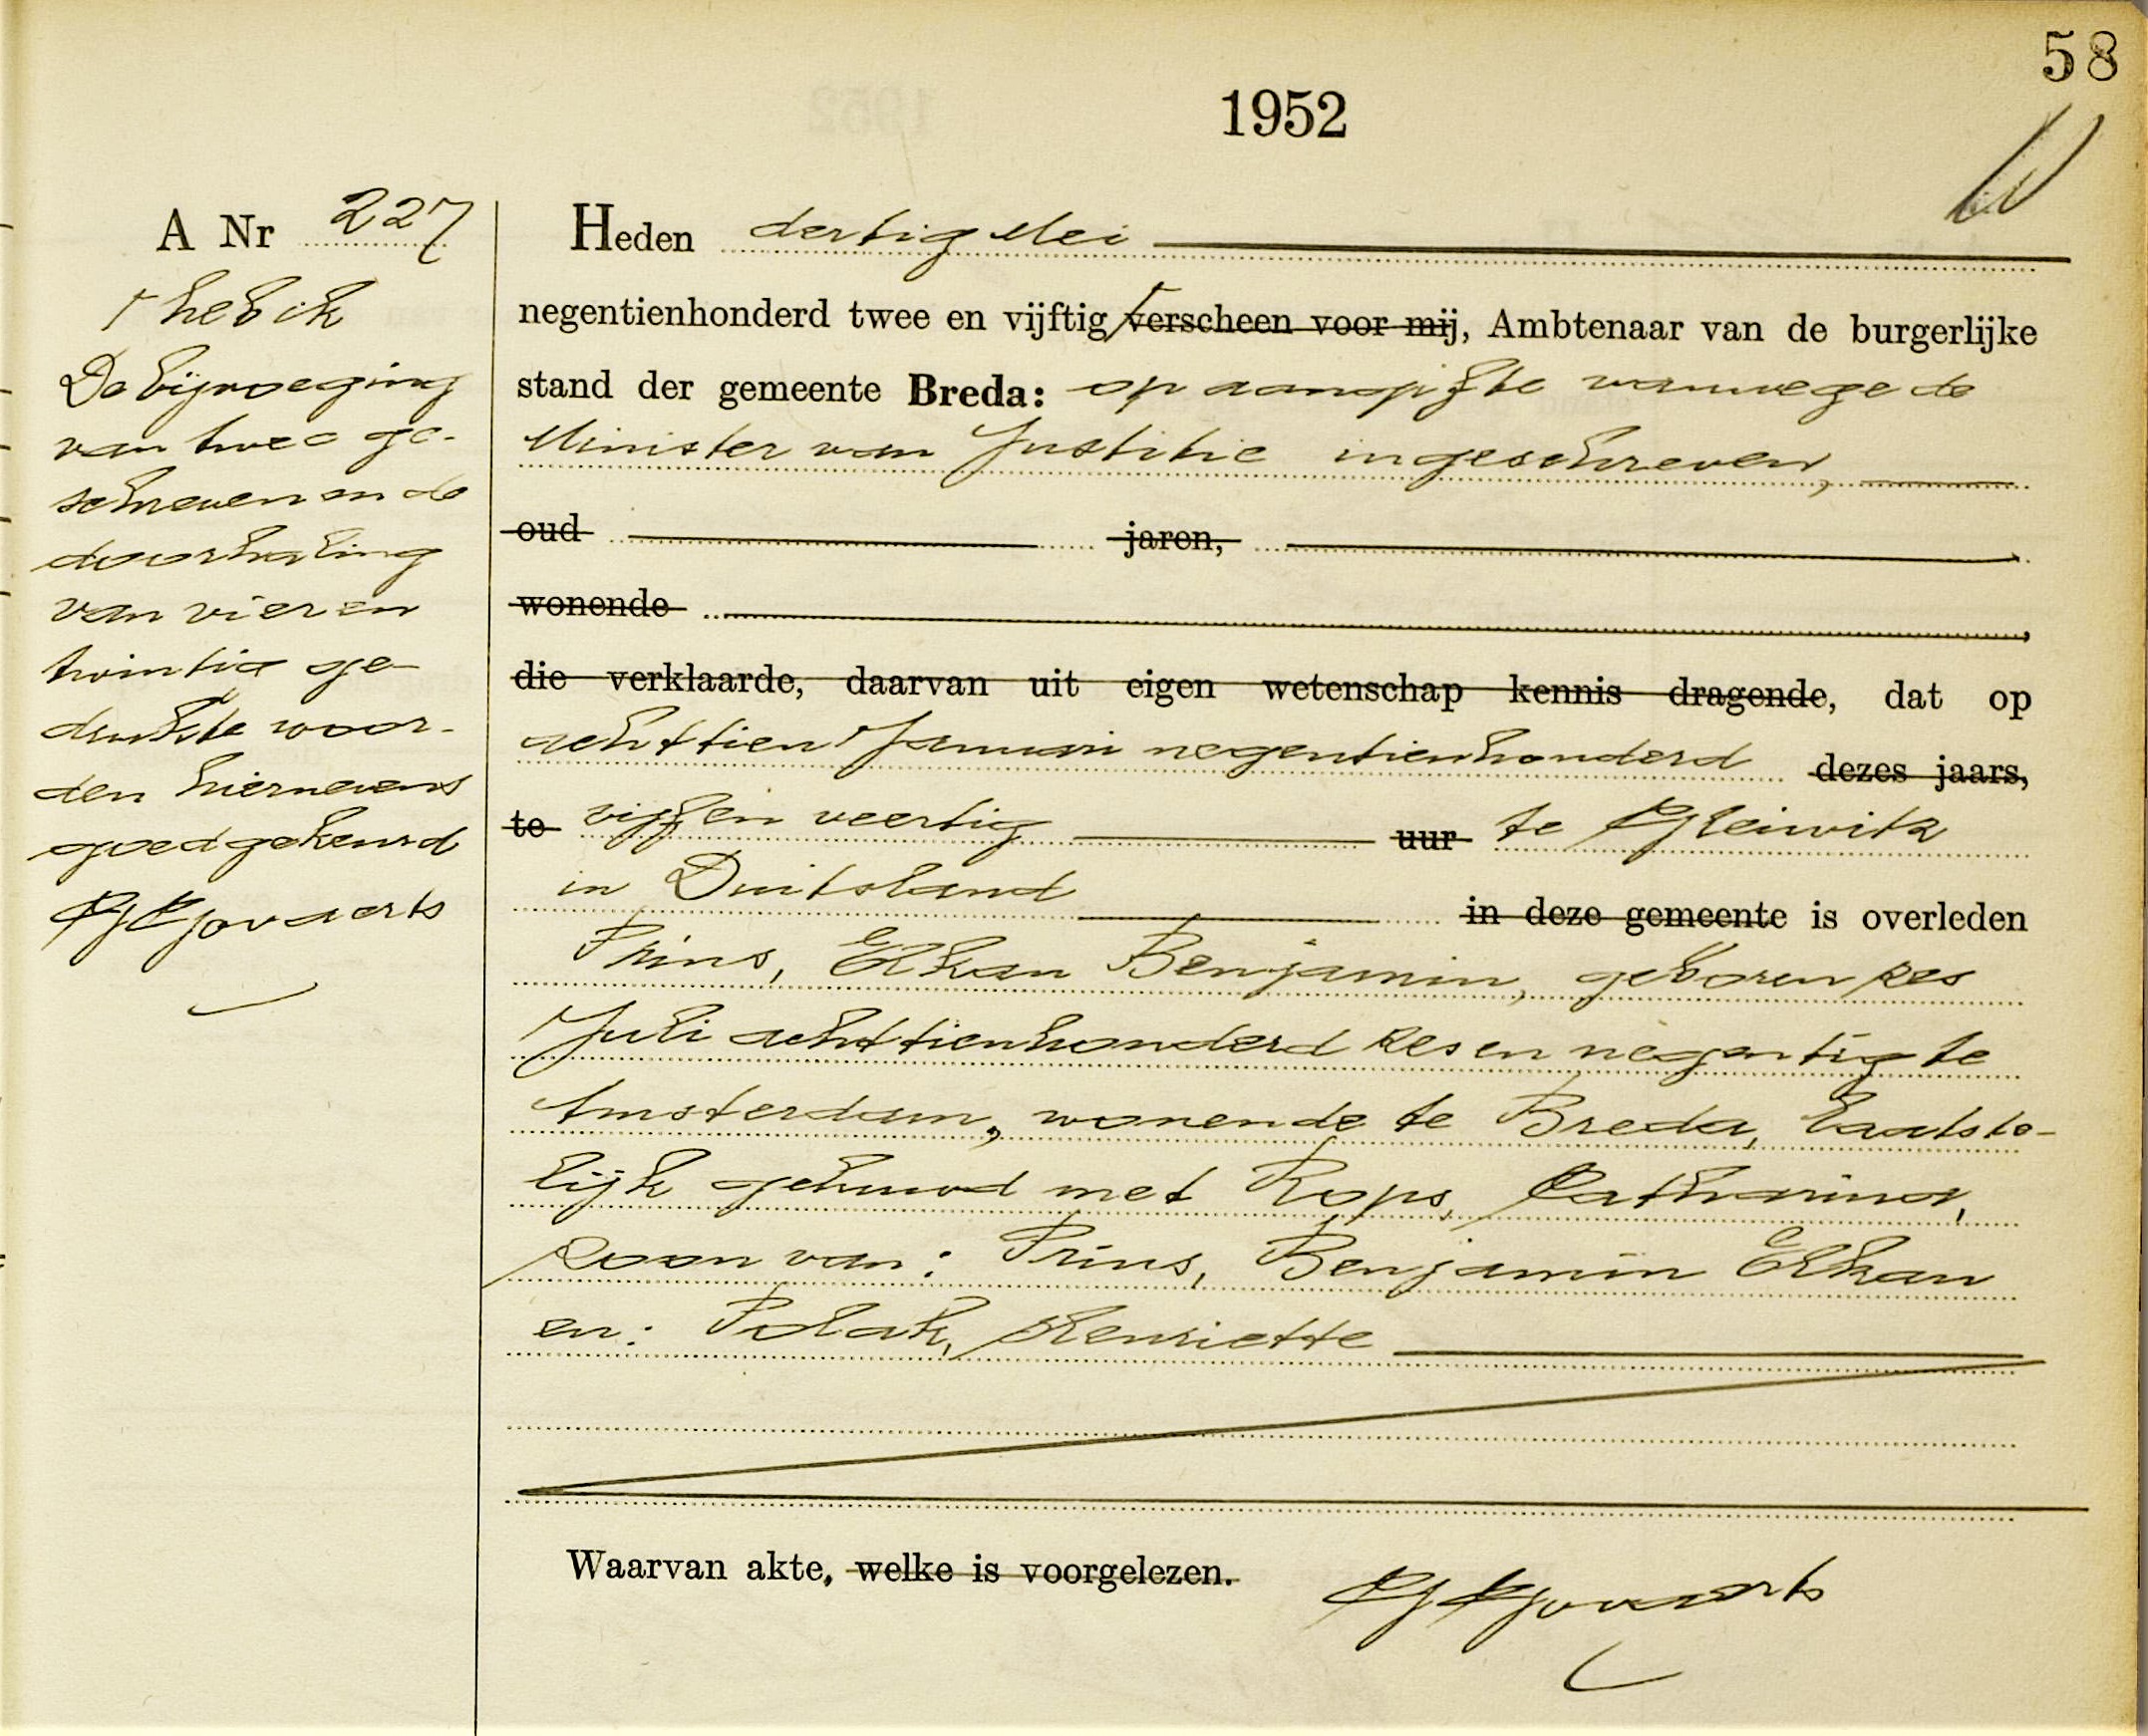 58
1952
A Nr 227
Γ heb ik
De bijvoeging
van twee ge-
schreven en de
doorhaling
van vier en
twintig ge-
drukte woor-
den hiernevens
goedgekeurd
Heden dertig Mei
negentienhonderd twee en vijftig Γ verscheen voor mij, Ambtenaar van de burgerlijke
stand der gemeente Breda: op aangifte vanwege de
Minister van Justitie ingeschreven,
oud jaren,
wonende
die verklaarde, daarvan uit eigen wetenschap kennis dragende, dat op
achttien Januari negentienhonderd dezes jaars,
te vijf en veertig uur te Gleiwitz
in Duitsland in deze gemeente is overleden
Prins, Elkan Benjamin, geboren zes
Juli achttienhonderd zes en negentig te
Amsterdam, wonende te Breda, laatste-
lijk gehuwd met Rops, Catharina,
zoon van: Prins, Benjamin Elkan
en: Polak, Henriette
Waarvan akte, welke is voorgelezen.